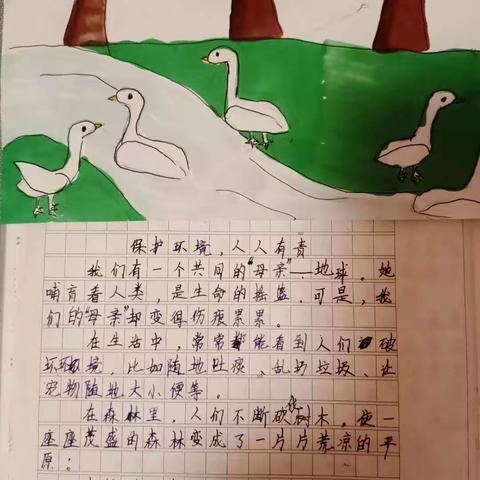 保护环境，人人有责
我们有一个共同的“母亲”——地球。她
哺育着人类，是生命的摇篮。可是，我
们的“母亲”却变得伤痕累累。
在生活中，常常能看到人们破
坏环境，比如随地吐痰、乱扔垃圾、让
宠物随地大小便等。
在森林里，人们不断砍伐树木，使一
座座茂盛的森林变成了一片片荒凉的平
原；